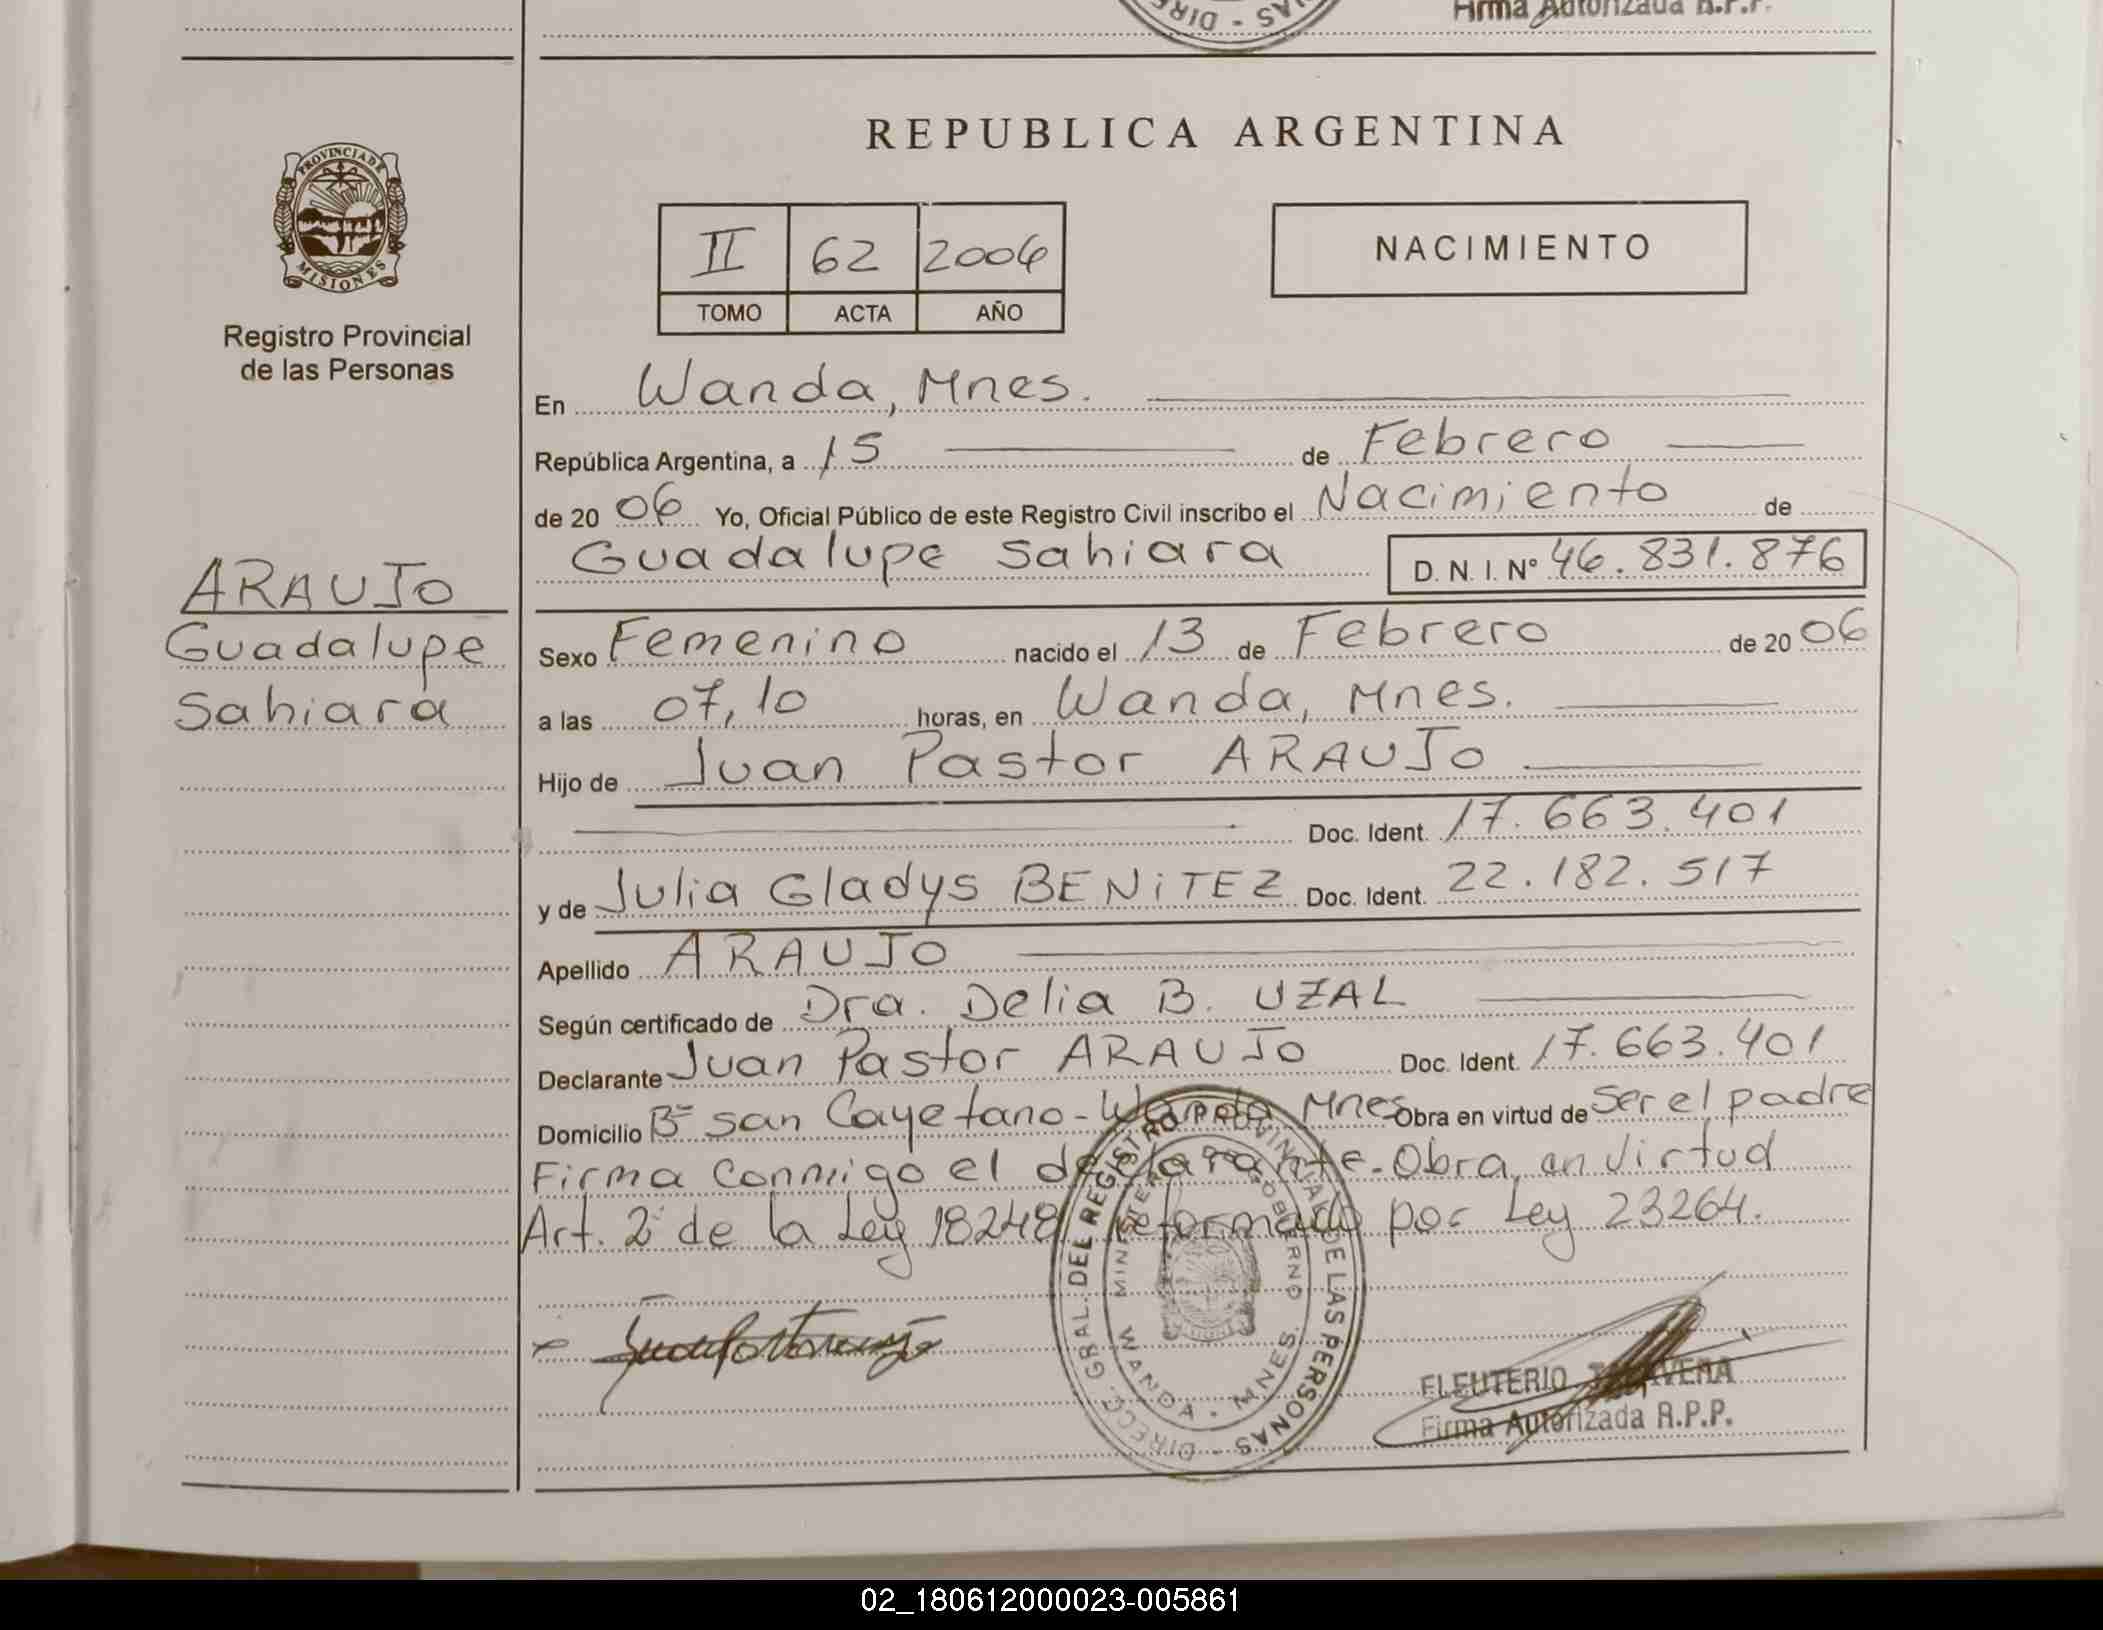 Firma Autorizada R.P.P.
REPUBLICA ARGENTINA
PROVINCIA DE
MISIONES
Registro Provincial
de las Personas
II 62 2006
TOMO ACTA AÑO
NACIMIENTO
En Wanda, Mnes.
República Argentina, a 15 de Febrero
de 20 06 Yo, Oficial Público de este Registro Civil inscribo el Nacimiento de
Guadalupe Sahiara D. N. I. N° 46.831.876
ARAUJO
Guadalupe
Sahiara
Sexo Femenino nacido el 13 de Febrero de 20 06
a las 07,10 horas, en Wanda, Mnes.
Hijo de Juan Pastor ARAUJO
Doc. Ident. 17.663.401
y de Julia Gladys BENITEZ Doc. Ident. 22.182.517
Apellido ARAUJO
Según certificado de Dra. Delia B. UZAL
Declarante Juan Pastor ARAUJO Doc. Ident. 17.663.401
Domicilio B° San Cayetano - Wanda Mnes Obra en virtud de Ser el padre
Firma conmigo el declarante. Obra en virtud
Art. 2° de la Ley 18248 reformado por Ley 23264.
DIRECC. GRAL. DEL REGISTRO PROVINCIAL DE LAS PERSONAS
MINISTERIO DE GOBIERNO
WANDA - MNES.
ELEUTERIO TALAVERA
Firma Autorizada R.P.P.
02_180612000023-005861